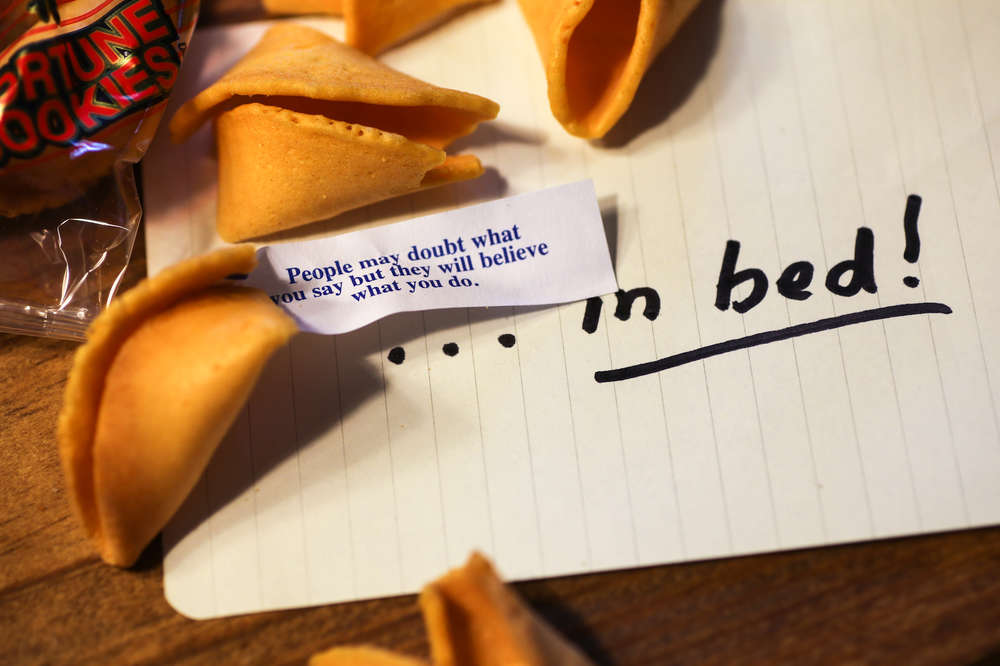 FORTUNE
COOKIES
People may doubt what
you say but they will believe
what you do.
... in bed!